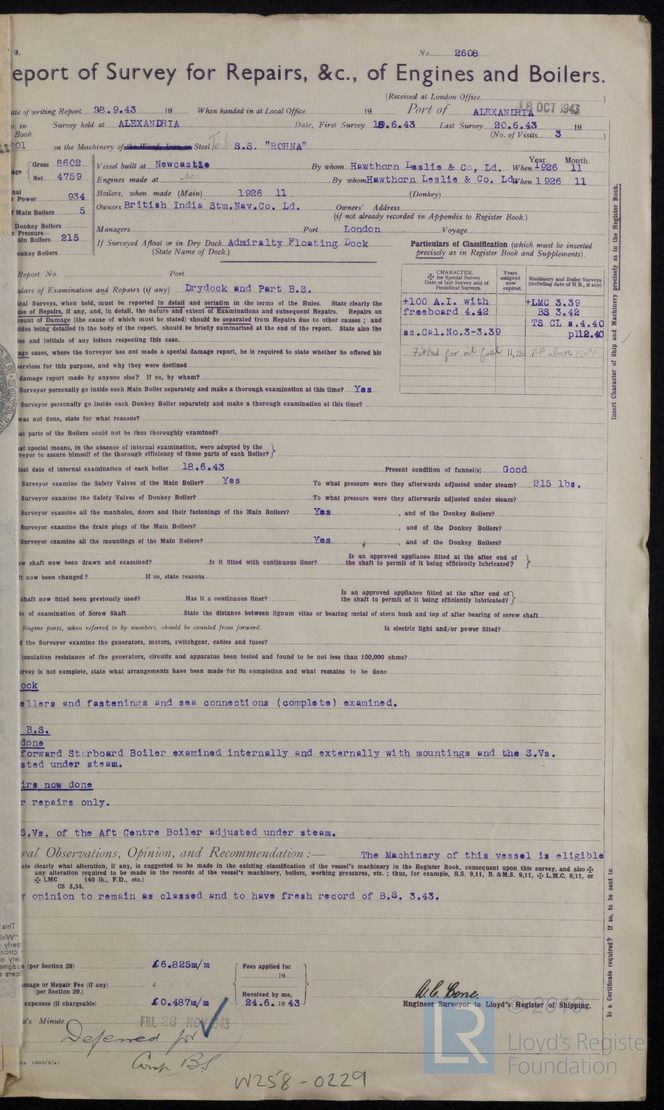 No. 2608
eport of Survey for Repairs, &c., of Engines and Boilers.
(Received at London Office )
18 OCT 1943
ate of writing Report 28.9.43 19 When handed in at Local Office 19 Port of ALEXANDRIA
Survey held at ALEXANDRIA Date, First Survey 18.6.43 Last Survey 20.6.43 19
Book. (No. of Visits 3 )
201 on the Machinery of the Wood, Iron or Steel S.S. "ROHNA"
Gross 8602
Net 4759
Vessel built at Newcastle By whom Hawthorn Leslie & Co, Ld. When Year 1926 Month. 11
Engines made at -do- By whom Hawthorn Leslie & Co. Ld. When 1926 11
Power 934
Boilers, when made (Main) 1926 11 (Donkey)
Main Boilers 5
Owners British India Stm.Nav.Co. Ld. Owners' Address
(if not already recorded in Appendix to Register Book.)
Donkey Boilers
Managers Port London Voyage
Pressure
ain Boilers 215
onkey Boilers
If Surveyed Afloat or in Dry Dock Admiralty Floating Dock
(State Name of Dock.)
Particulars of Classification (which must be inserted
precisely as in Register Book and Supplements).
Report No. Port
lars of Examination and Repairs (if any) Drydock and Part B.S.
CHARACTER.
✠ for Special Survey
Date of last Survey and of
Periodical Surveys.
Years
assigned
expired.
Machinery and Boiler Surveys
(including date of N.B., if any)
+100 A.I. with
freeboard 4.42
ss.Cal.No.3-3.39
+LMC 3.39
BS 3.42
TS CL s.4.40
p112.40
Fitted for oil fuel 11,26 FP above 150°F
cal Surveys, when held, must be reported in detail and seriatim in the terms of the Rules. State clearly the
use of Repairs, if any, and, in detail, the nature and extent of Examinations and subsequent Repairs. Repairs on
ount of Damage (the cause of which must be stated) should be separated from Repairs due to other causes ; and
sides being detailed in the body of the report, should be briefly summarised at the end of the report. State also the
es and initials of any letters respecting this case.
age cases, where the Surveyor has not made a special damage report, he is required to state whether he offered his
services for this purpose, and why they were declined
damage report made by anyone else? If so, by whom?
Surveyor personally go inside each Main Boiler separately and make a thorough examination at this time? Yes
Surveyor personally go inside each Donkey Boiler separately and make a thorough examination at this time?
was not done, state for what reasons?
at parts of the Boilers could not be thus thoroughly examined?
at special means, in the absence of internal examination, were adopted by the
veyor to assure himself of the thorough efficiency of those parts of each Boiler?
est date of internal examination of each boiler 18.6.43 Present condition of funnel(s) Good
Surveyor examine the Safety Valves of the Main Boiler? Yes To what pressure were they afterwards adjusted under steam? 215 lbs.
Surveyor examine the Safety Valves of Donkey Boiler? To what pressure were they afterwards adjusted under steam?
Surveyor examine all the manholes, doors and their fastenings of the Main Boilers? Yes , and of the Donkey Boilers?
Surveyor examine the drain plugs of the Main Boilers? , and of the Donkey Boilers?
Surveyor examine all the mountings of the Main Boilers? Yes , and of the Donkey Boilers?
w shaft now been drawn and examined? Is it fitted with continuous liner? Is an approved appliance fitted at the after end of
the shaft to permit of it being efficiently lubricated?
t now been changed? If so, state reasons
shaft now fitted been previously used? Has it a continuous liner? Is an approved appliance fitted at the after end of
the shaft to permit of it being efficiently lubricated?
te of examination of Screw Shaft State the distance between lignum vitae or bearing metal of stern bush and top of after bearing of screw shaft
Engine parts, when referred to by numbers, should be counted from forward. Is electric light and/or power fitted?
d the Surveyor examine the generators, motors, switchgear, cables and fuses?
insulation resistance of the generators, circuits and apparatus been tested and found to be not less than 100,000 ohms?
urvey is not complete, state what arrangements have been made for its completion and what remains to be done
ock
ellers and fastenings and sea connections (complete) examined.
B.S.
done
forward Starboard Boiler examined internally and externally with mountings and the S.Vs.
sted under steam.
irs now done
r repairs only.
S.Vs. of the Aft Centre Boiler adjusted under steam.
ral Observations, Opinion, and Recommendation :— The Machinery of this vessel is eligible
ate clearly what alteration, if any, is suggested to be made in the existing classification of the vessel's machinery in the Register Book, consequent upon this survey, and also
any alteration required to be made in the records of the vessel's machinery, boilers, working pressures, etc. ; thus, for example, B.S. 9,11, B.&M.S. 9,11, ✠ L.M.C. 9,11, or
✠ LMC 140 lb., F.D., etc.)
CS 3,34.
y opinion to remain as classed and to have fresh record of B.S. 3.43.
(per Section 29) £6.825m/m
Fees applied for
19
amage or Repair Fee (if any)
(per Section 29.) £
Received by me,
24.6.19 43
expenses (if chargeable) £0.487m/m
Engineer Surveyor to Lloyd's Register of Shipping.
e's Minute
FRI. 26 NOV 1943
Deferred for
Comp BS
W258-0229
Insert Character of Ship and Machinery precisely as in the Register Book.
Is a Certificate required? If so, to be sent to
LR
Lloyd's Register
Foundation